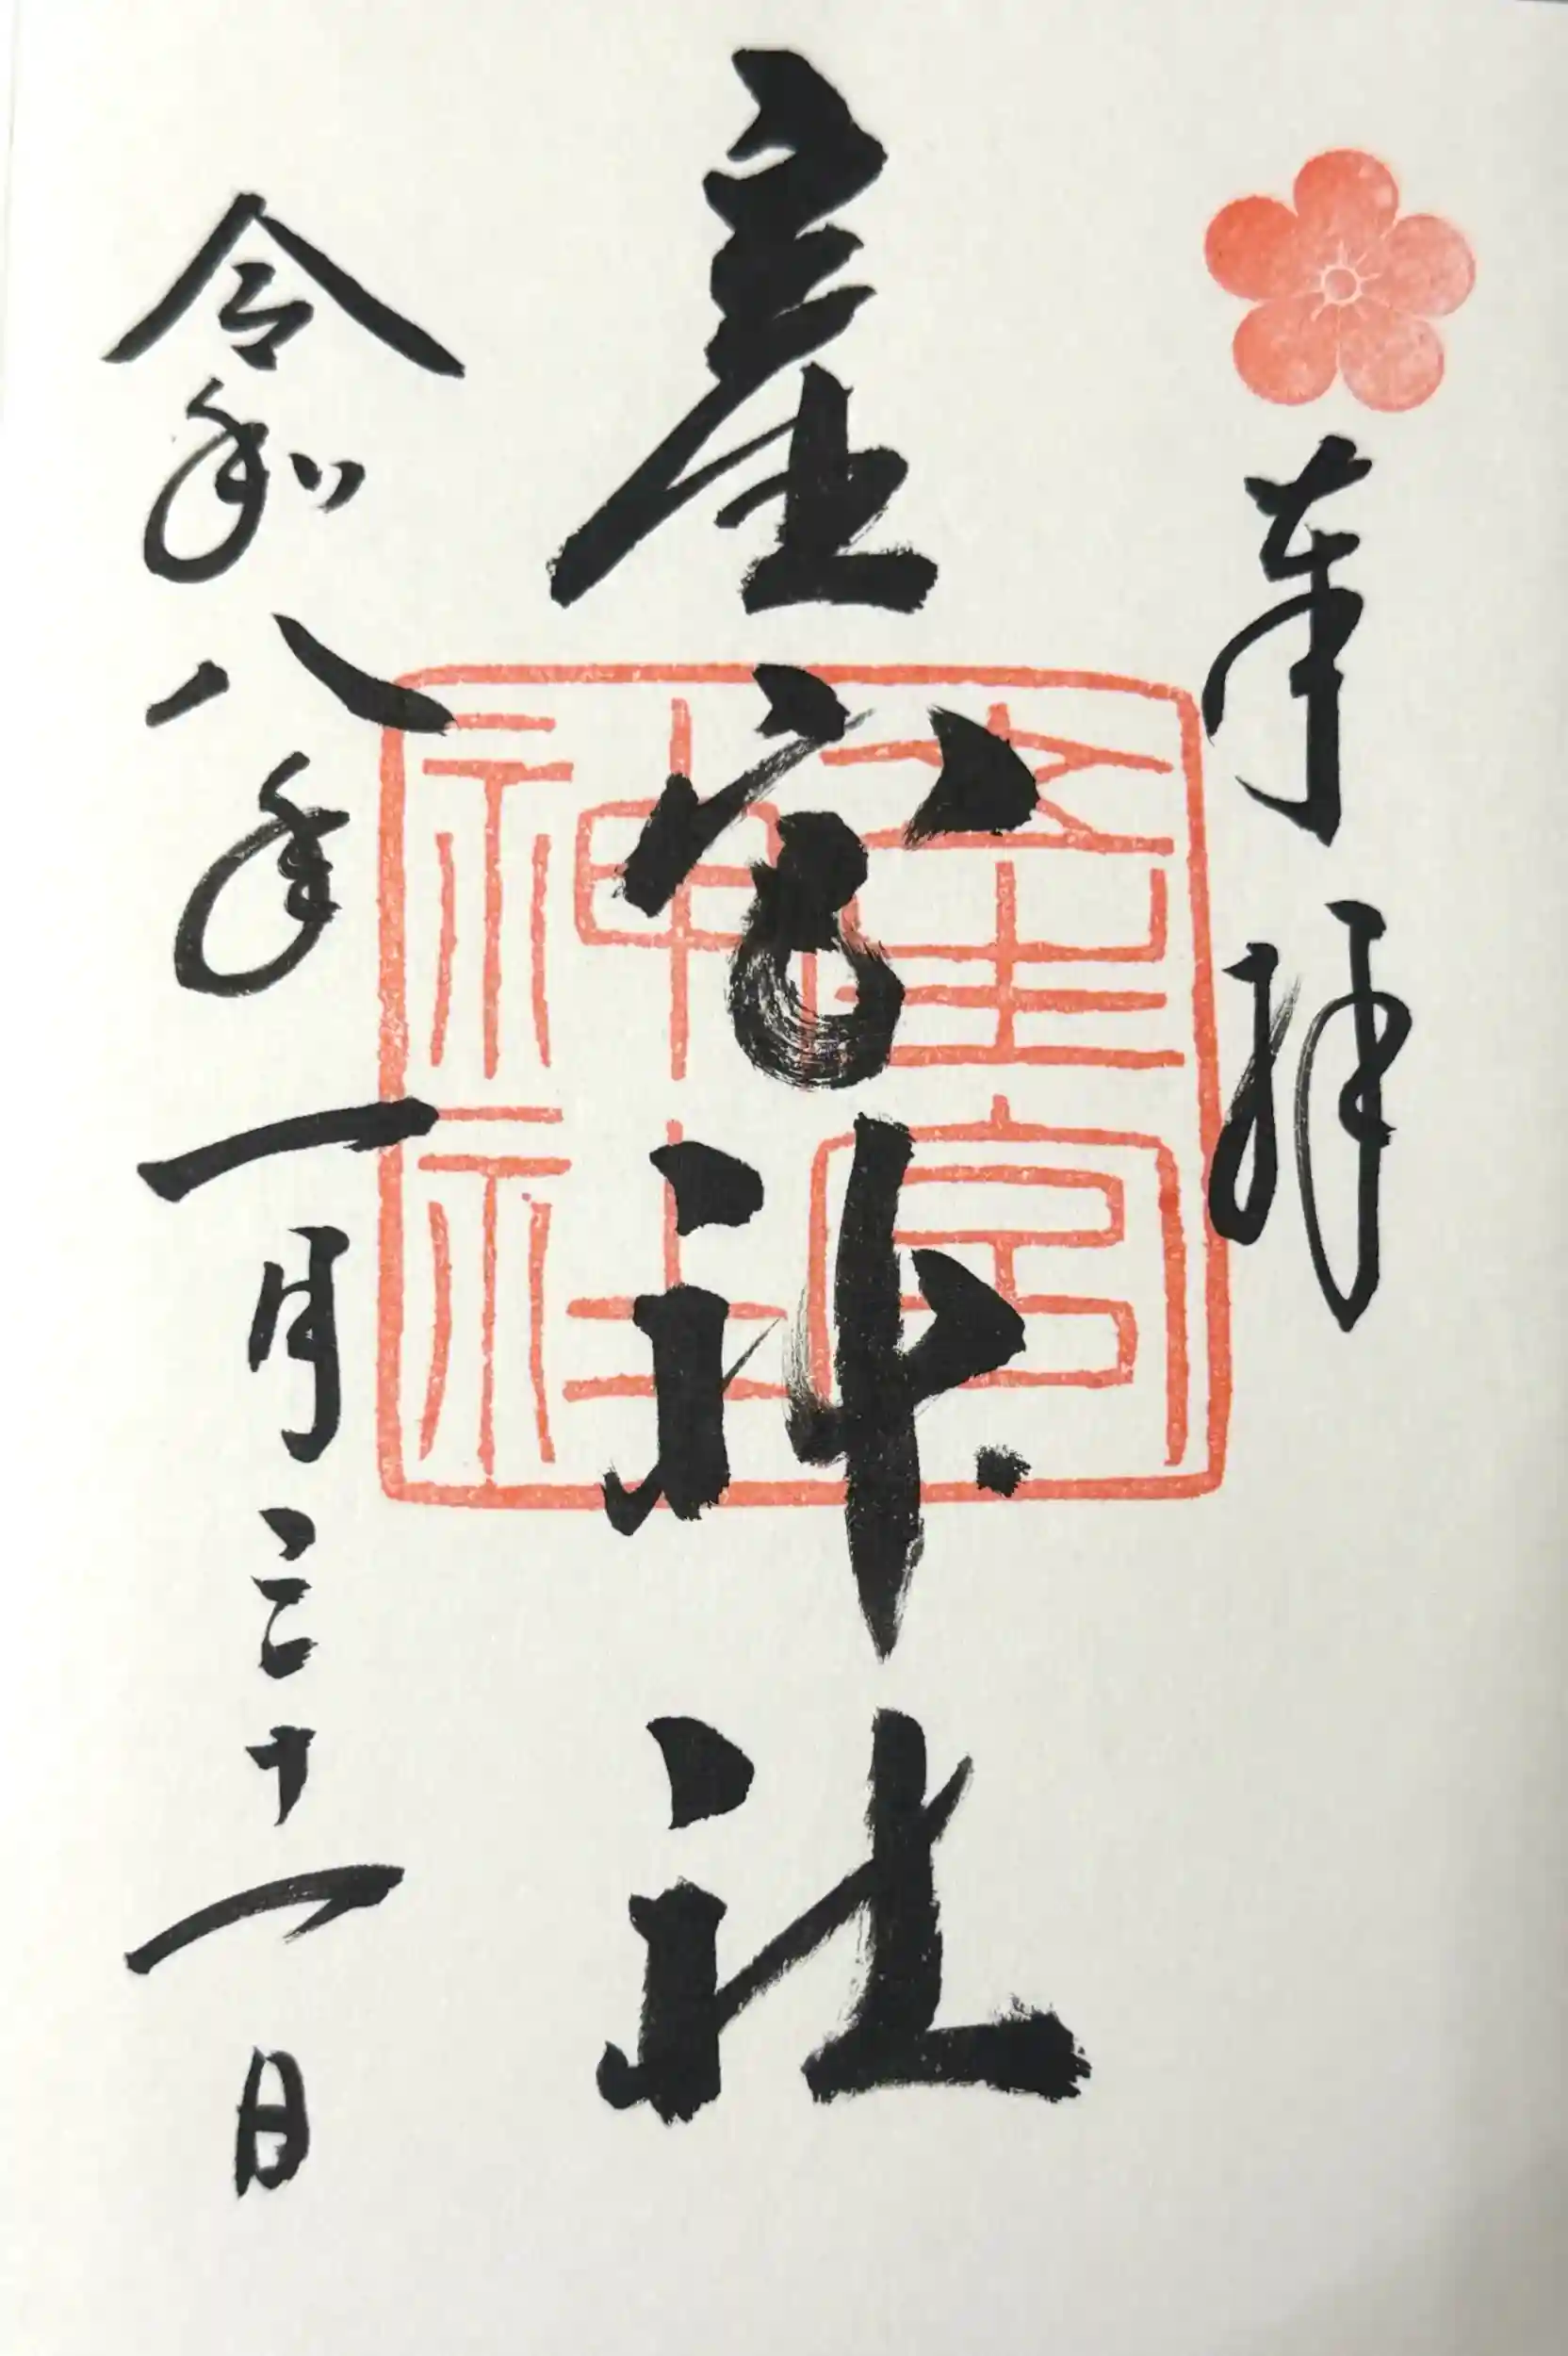 奉拝
産宮神社
産宮神社
令和八年一月三十一日